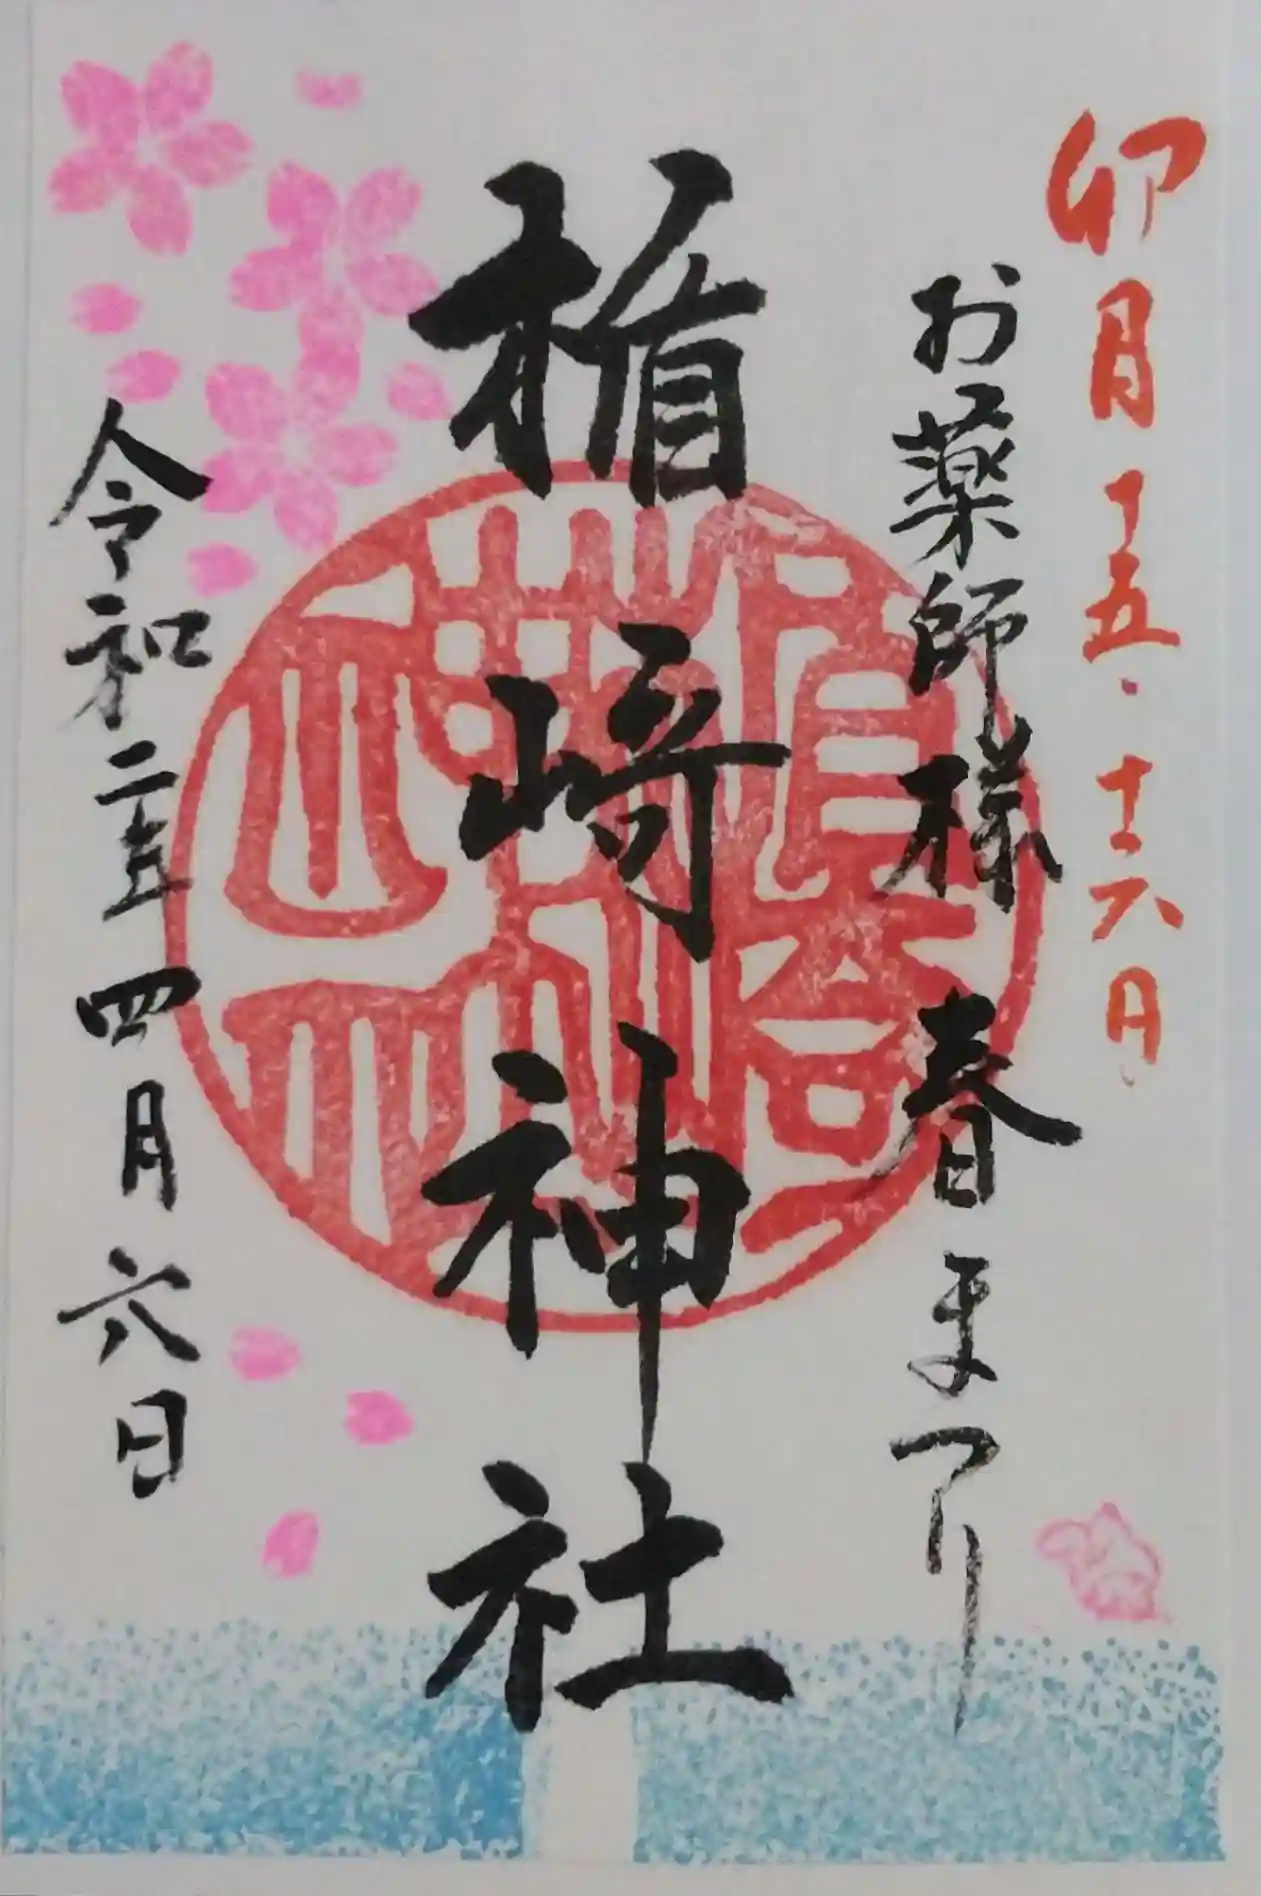 卯月十五・十六日
お薬師様 春まつり
楯崎神社
令和二年四月六日